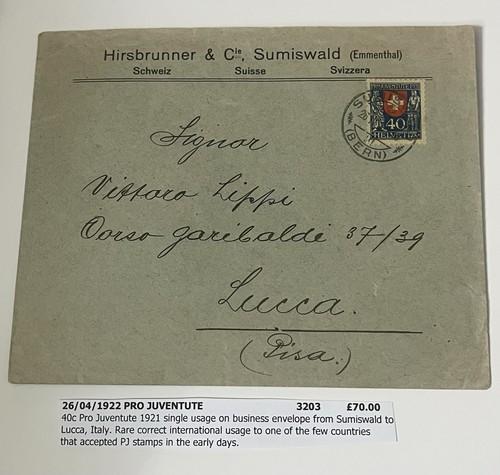 Hirsbrunner & Cie, Sumiswald (Emmenthal)
Schweiz Suisse Svizzera
40
HELVETIA
(BERN)
Signor
Vittoro Lippi
Corso garibaldi 37/39
Lucca.
(Pisa.)
26/04/1922 PRO JUVENTUTE 3203 £70.00
40c Pro Juventute 1921 single usage on business envelope from Sumiswald to
Lucca, Italy. Rare correct international usage to one of the few countries
that accepted PJ stamps in the early days.